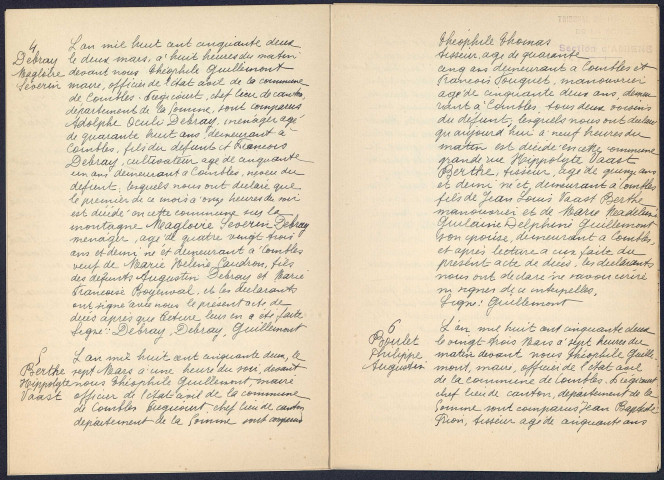 4
Debray
Magloire
Séverin
L'an mil huit cent cinquante deux
le deux mars, à huit heures du matin
devant nous Théophile Guillemont
maire, officier de l'état civil de la commune
de Combles. Fregicourt, chef lieu de canton
département de la Somme, sont comparus
Adolphe Oculi Debray, ménager âgé
de quarante huit ans, demeurant à
Combles, fils du défunt et François
Debray, cultivateur agé de cinquante
un ans demeurant à Combles, neveu du
défunt, lesquels nous ont déclaré que
le premier de ce mois à onze heures du soir
est décédé en cette commune sur la
montagne Magloire Séverin Debray
ménager, âgé de quatre vingt trois
ans et demi né et demeurant à Combles
veuf de Marie Hélène Caudron, fils
des défunts Augustin Debray et Marie
Françoise Boyenval, et les déclarants
ont signé avec nous le présent acte de
décès après que lecture leur en a été faite
Signé: Debray, Debray, Guillemont
5
Berthe
Hippolyte
Vaast
L'an mil huit cent cinquante deux, le
sept Mars à une heure du soir, devant
nous Théophile Guillemont, maire
officier de l'état civil de la commune
de Combles Fregicourt, chef lieu de canton
département de la Somme sont comparus
Théophile Thomas
tisseur, agé de quarante
cinq ans demeurant à Combles et
François Fouquet, manouvrier
agé de cinquante deux ans, demeu
rant à Combles, tous deux voisins
du défunt, lesquels nous ont déclaré
qu'aujourd'hui à neuf heures du
matin est décédé en cette commune
grande rue Hippolyte Vaast
Berthe, tisseur, agé de quinze ans
et demi né et, demeurant à Combles
fils de Jean Louis Vaast Berthe
manouvrier et de Marie Madeleine
Guilaine Delphine Guillemont
son épouse, demeurant à Combles,
et après lecture à eux faite du
présent acte de décès, les déclarants
nous ont déclaré ne savoir écrire
ni signer de ce interpellés.
Signé: Guillemont
6
Poulet
Philippe
Augustin
L'an mil huit cent cinquante deux
le vingt trois Mars à sept heures du
matin devant nous Théophile Guille
mont, maire, officier de l'état civil
de la commune de Combles. Fregicourt
chef lieu de canton, département de la
Somme sont comparus Jean Baptiste
Prion, tisseur agé de cinquante ans